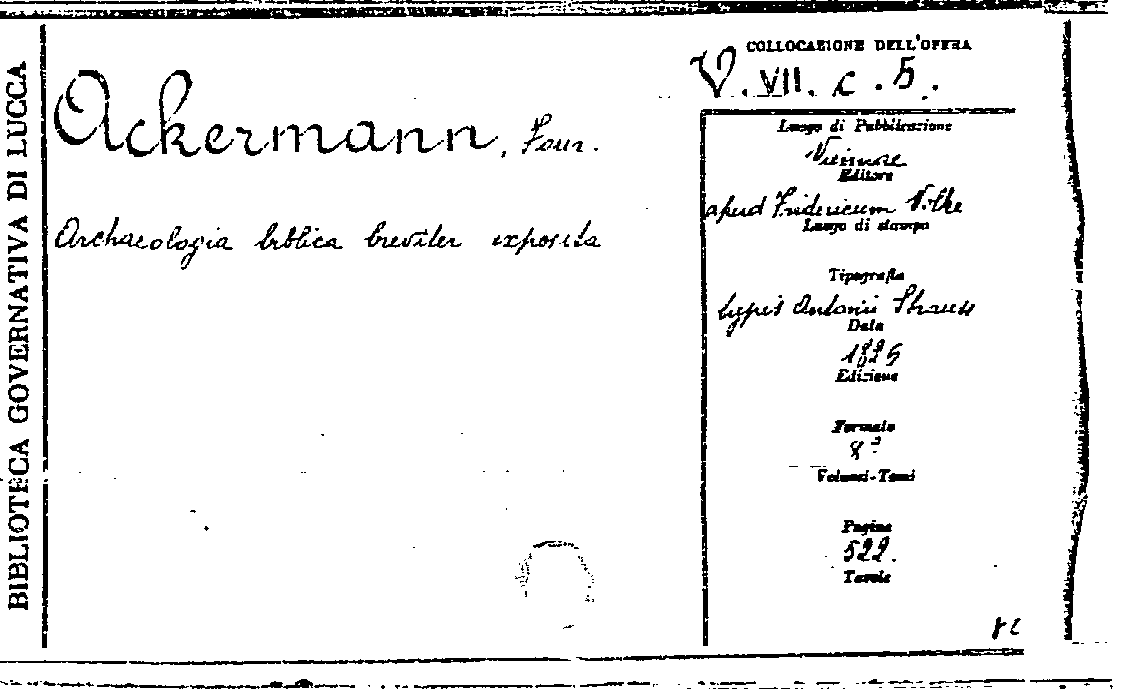 BIBLIOTECA GOVERNATIVA DI LUCCA
COLLOCAZIONE DELL'OPERA
V. VII. c. 5.
Ackermann, Four.
Archaeologia biblica breviter exposita
Luogo di Pubblicazione
Viennae
Editore
apud Fridericum Volke
Luogo di stampa
Tipografia
typis Antonii Strauss
Data
1826
Edizione
Formato
8°
Volumi-Tomi
Pagine
522.
Tavole